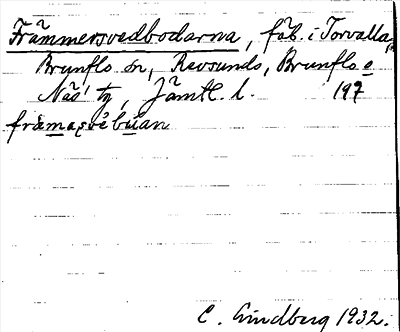 Främmersvedbodarna, fäb. i Torvalla,
Brunflo sn, Revsunds, Brunflo o
Näs tg, Jämtl. l. 197
framasvebuan
C. Lindberg 1932.